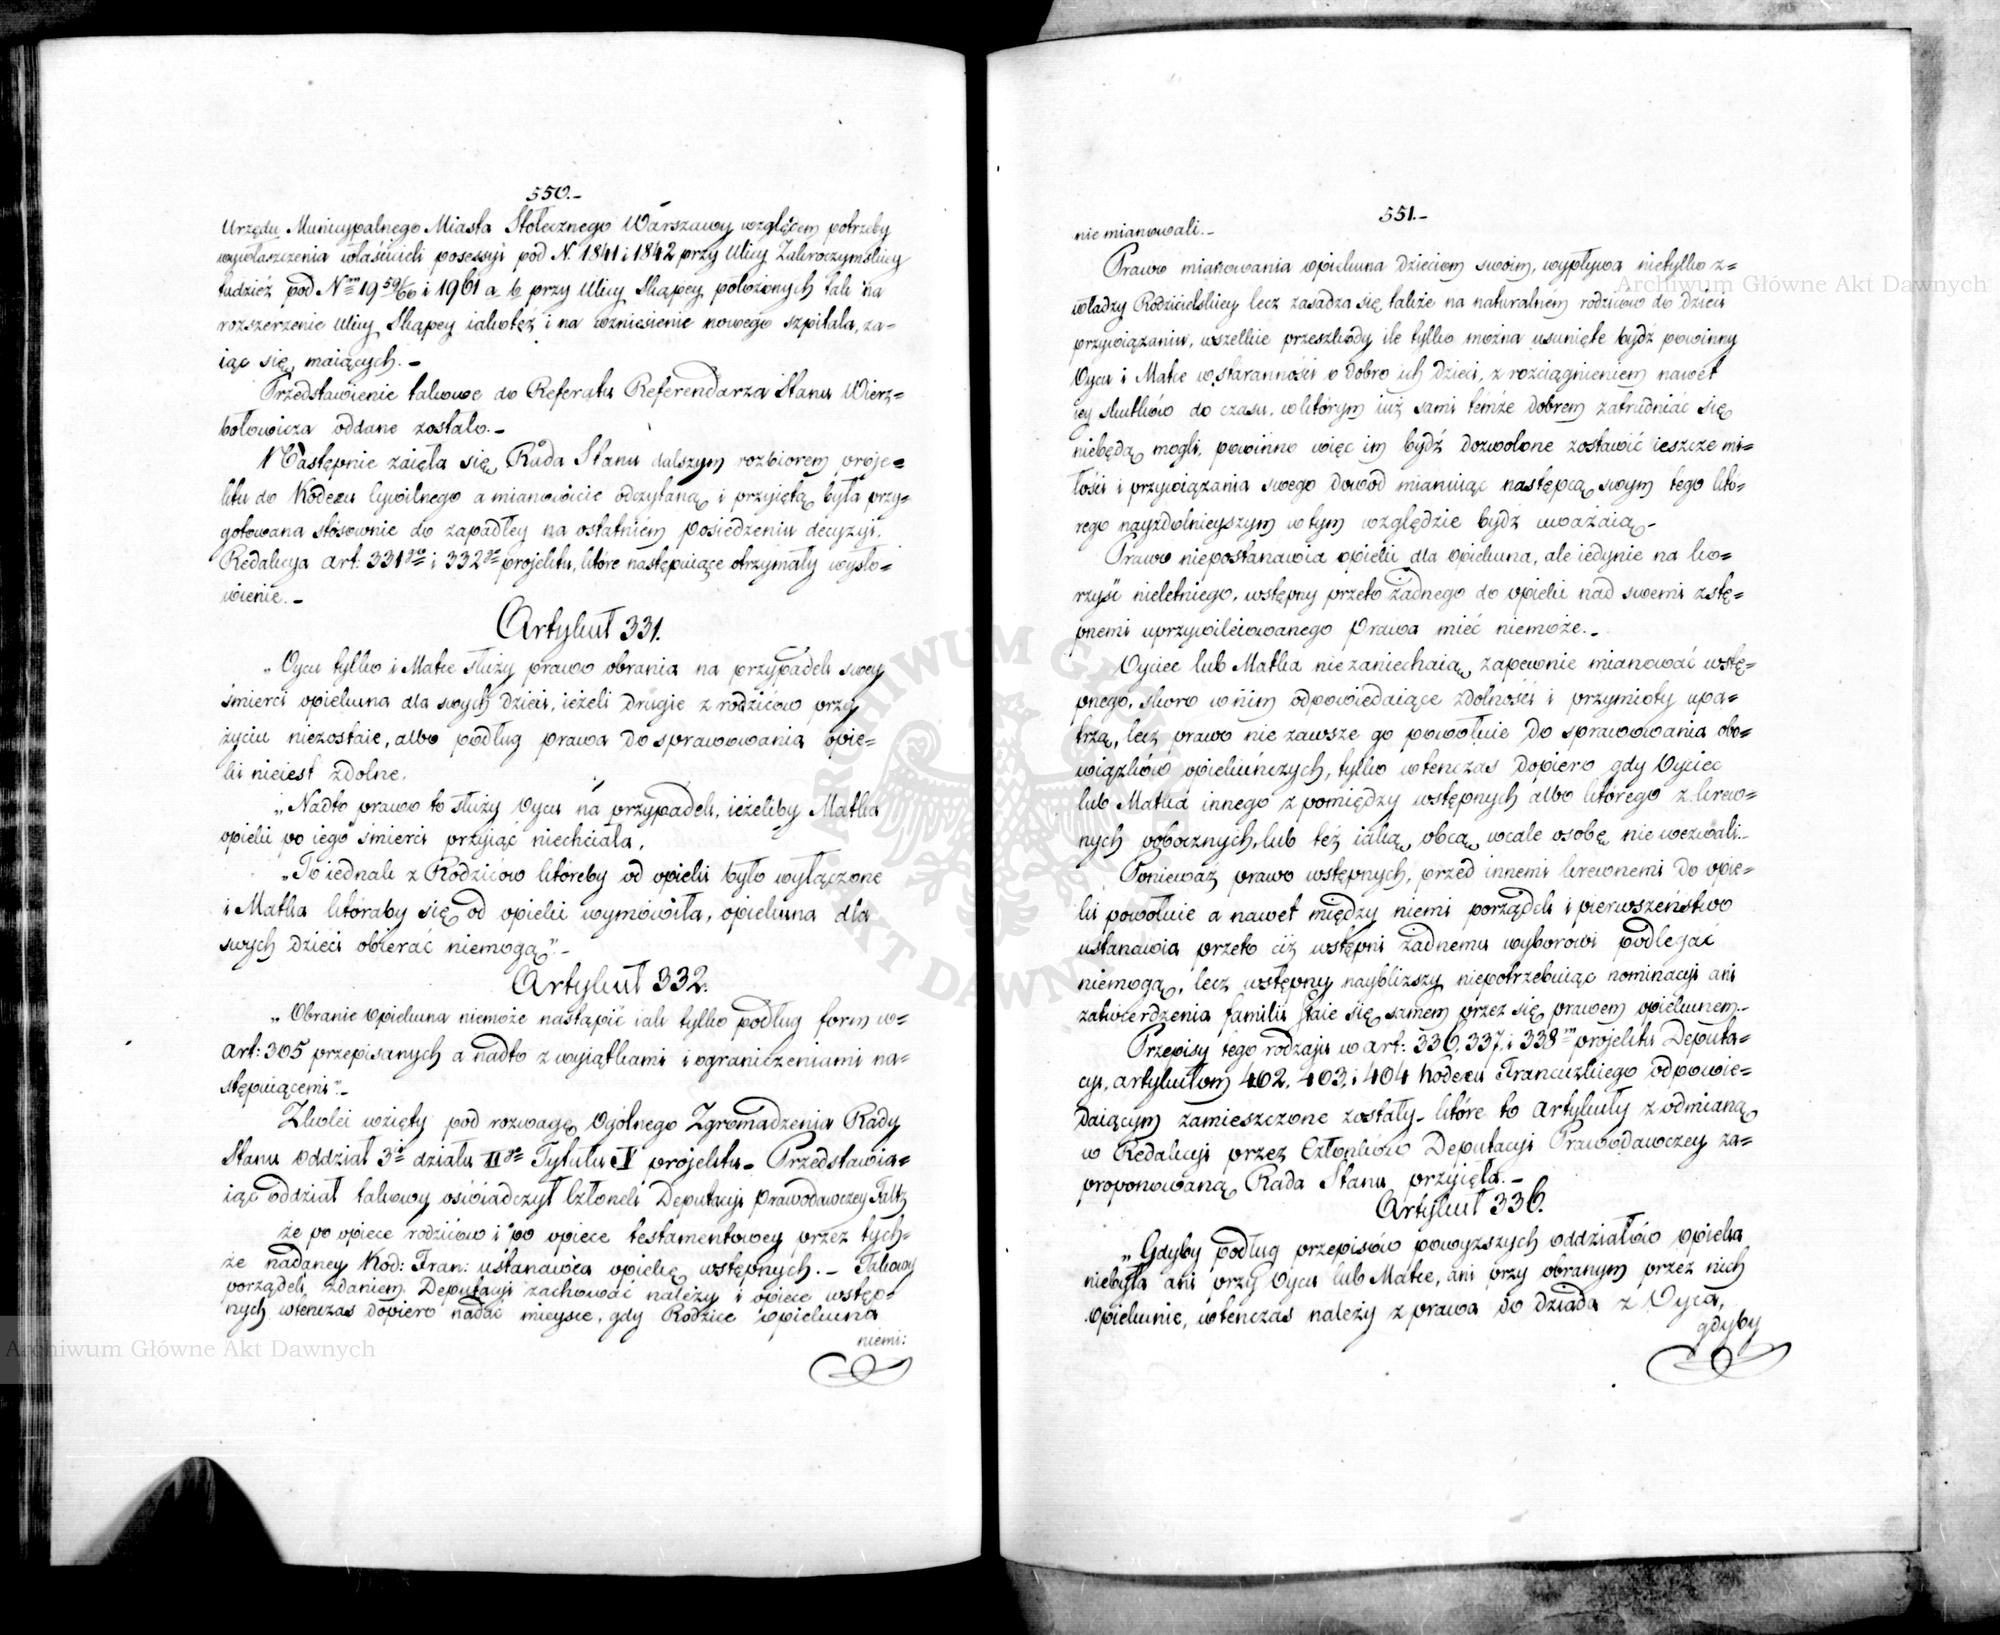 550.-
Urzędu Municypalnego Miasta Stołecznego Warszawy względem potrzeby
wywłaszczenia właścicieli posessyi pod N. 1841 i 1842 przy Ulicy Zakroczymskiey
tudzież pod N 1959/60 i 1961 a b przy Ulicy Skąpey położonych tak na
rozszerzenie Ulicy Skąpey iakoteż i na wzniesienie nowego szpitala, za=
iąć się maiących.-
Przedstawienie takowe do Referatu Referendarza Stanu Wierz=
bołowicza oddane zostało.-
Następnie zaięła się Rada Stanu dalszym rozbiorem proje=
ktu do Kodexu Cywilnego a mianowicie odczytaną i przyiętą była przy=
gotowana stosownie do zapadłey na ostatniém posiedzeniu decyzyi,
Redakcya art: 331go i 332go projektu, które następuiące otrzymały wysło=
wienie.-
Artykuł 331.
„Oycu tylko i Matce służy prawo obrania na przypadek swey
śmierci opiekuna dla swych dzieci, ieżeli drugie z rodziców przy
życiu niezostaie, albo podług prawa do sprawowania opie=
ki nieiest zdolne.
„Nadto prawo to służy Oycu na przypadek, ieżeliby Matka
opieki po iego śmierci przyiąć niechciała.
„To iednak z Rodziców któreby od opieki było wyłączone
i Matka któraby się od opieki wymówiła, opiekuna dla
swych dzieci obierać niemogą”.-
Artykuł 332.
„Obranie opiekuna niemoże nastąpić iak tylko podług form w=
art: 305 przepisanych a nadto z wyiątkami i ograniczeniami na=
stępuiącemi”.-
Zkolei wzięty pod rozwagę Ogólnego Zgromadzenia Rady
Stanu oddział 3ci działu IIgo Tytułu V projektu.- Przedstawia=
iąc oddział takowy oświadczył Członek Deputacyi Prawodawczey Faltz
że po opiece rodziców i po opiece testamentowey przez tych=
że nadaney Kod: Fran: ustanawia opiekę wstępnych.- Takowy
porządek, zdaniem Deputacyi zachować należy i opiece wstęp=
nych wtenczas dopiero nadać mieysce, gdy Rodzice opiekuna
niemi:
551.-
niemianowali.-
Prawo mianowania opiekuna dzieciom swoim, wypływa nietylko z=
władzy Rodzicielskiey lecz zasadza się także na naturalném rodziców do dzieci
przywiązaniu, wszelkie przeszkody ile tylko można usunięte bydź powinny
Oycu i Matce w staranności o dobro ich dzieci, z rozciągnieniem nawet
iey skutków do czasu, w którym iuż sami témże dobrem zatrudniać się
niebędą mogli, powinno więc im bydź dozwolone zostawić ieszcze mi=
łości i przywiązania swego dowód mianuiąc następcą swym tego któ=
rego nayzdolnieyszym w tym względzie bydź uważaią.-
Prawo niepostanawia opieki dla opiekuna, ale iedynie na ko=
rzyść nieletniego, wstępny przeto żadnego do opieki nad swemi zstę=
pnemi uprzywileiowanego Prawa mieć niemoże.-
Oyciec lub Matka niezaniechaią zapewnie mianować wstę=
pnego, skoro w nim odpowiedaiące zdolności i przymioty upa=
trzą, lecz prawo nie zawsze go powołuie do sprawowania obo=
wiązków opiekuńczych, tylko wtenczas dopiero gdy Oyciec
lub Matka innego z pomiędzy wstępnych albo którego z krew=
nych pobocznych, lub téż iaką obcą wcale osobę nie wezwali.-
Ponieważ prawo wstępnych, przed innemi krewnemi do opie=
ki powołuie a nawet między niemi porządek i pierwszeństwo
ustanawia przeto ciż wstępni żadnemu wyborowi podlegać
niemogą, lecz wstępny naybliższy niepotrzebuiąc nominacyi ani
zatwierdzenia familii staie się samem przez się prawem opiekunem.-
Przepisy tego rodzaju w art: 336, 337, i 338m projektu Deputa=
cyi, artykułom 402, 403, i 404 Kodexu Francuzkiego odpowie=
daiącym zamieszczone zostały.- które to artykuły z odmianą
w Redakcyi przez Członków Deputacyi Prawodawczey za=
proponowaną Rada Stanu przyięła.-
Artykuł 336.
„Gdyby podług przepisów powyższych oddziałów opieka
niebyła ani przy Oycu lub Matce, ani przy obranym przez nich
Opiekunie, wtenczas należy z prawa do dziada z Oyca,
gdyby
Archiwum Główne Akt Dawnych
Archiwum Główne Akt Dawnych
ARCHIWUM GŁÓWNE AKT DAWNYCH